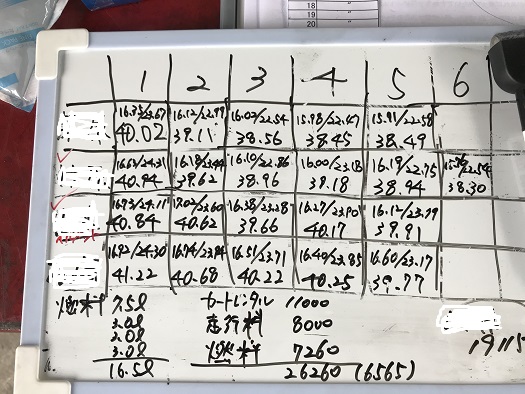 18
19
20
1 2 3 4 5 6
16.35/23.67 16.12/22.99 16.02/22.54 15.98/22.47 15.91/22.58
40.02 39.11 38.56 38.45 38.49
16.63/24.31 16.18/23.44 16.10/22.86 16.00/23.18 16.19/22.75
40.94 39.62 38.96 39.18 38.94 38.30
16.73/24.11 17.02/23.60 16.38/23.28 16.12/23.79
40.84 40.62 39.66 40.17 39.91
16.92/24.30 16.94/23.74 16.51/23.71 16.60/23.17
41.22 40.68 40.22 40.25 39.77
燃料 7.5ℓ カートレンタル 11000
3.0ℓ 走行料 8000
3.0ℓ 燃料 7260
3.0ℓ
16.5ℓ 26260 (6565)
19115